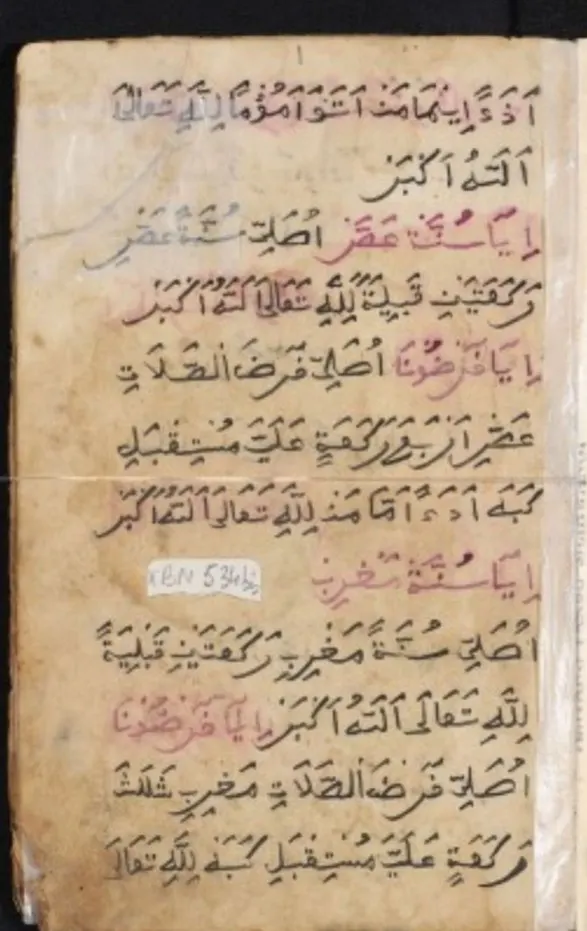 اَدَءً اِيْمَامَنْ اَتَوَ اَمُؤْمًا لِلّٰهِ تَعَالَى
اَللّٰهُ اَكْبَرْ
اِيَّا سُنَّةْ عَصَرْ اُصَلِّى سُنَّةً عَصْرِ
رَكَعَتَيْنِ قَبْلِيَةً لِلّٰهِ تَعَالَى اَللّٰهُ اَكْبَرْ
اِيَا فَرْضُونَا اُصَلِّى فَرْضَ الصَّلَاتِ
عَصْرِ اَرْبَعَ رَكَعَةٍ عَلَيَّ مُسْتِقْبَلِ
كَبَه اَدَءً اَمَّا مَنْ لِلّٰهِ تَعَالَى اَللّٰهُ اَكْبَرْ
اِيَّا سُنَّةْ مَغْرِبْ
KBN 534
اُصَلِّى سُنَّةً مَغْرِبِ رَكَعَتَيْنِ قَبْلِيَةً
لِلّٰهِ تَعَالَى اَللّٰهُ اَكْبَرْ اِيَّا فَرْضُونَا
اُصَلِّى فَرْضَ الصَّلَاتِ مَغْرِبِ ثَلَثَ
رَكَعَةٍ عَلَيَّ مُسْتِقْبَلِ كَبَه لِلّٰهِ تَعَالَى